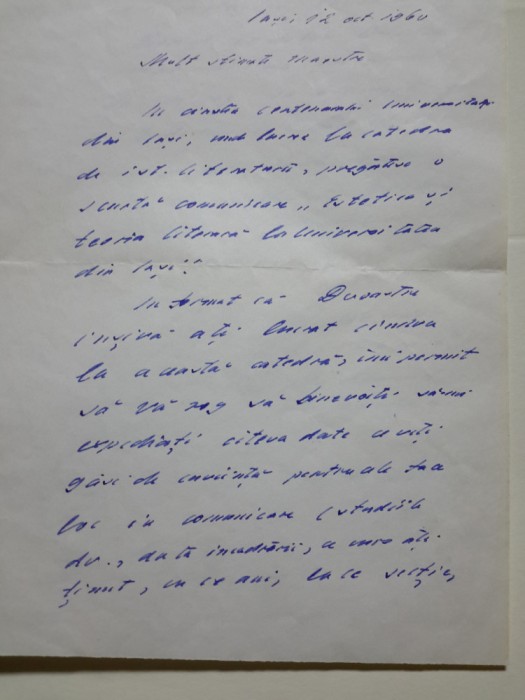 Iași 12 oct 1960
Mult stimate maestre
In cinstea centenarului Universității
din Iași, unde lucrez la catedra
de ist. literaturii, pregătesc o
scurtă comunicare „Estetica și
teoria literară la Universitatea
din Iași."
Informat că Dvoastră
inșivă ați lucrat cîndva
la această catedră, imi permit
să vă rog să binevoiți să-mi
expediați citeva date ce veți
găsi de cuviință pentru a le face
loc in comunicare (studiile
dv., data incadrării, ce curs ați
ținut, ce ani, la ce secție,